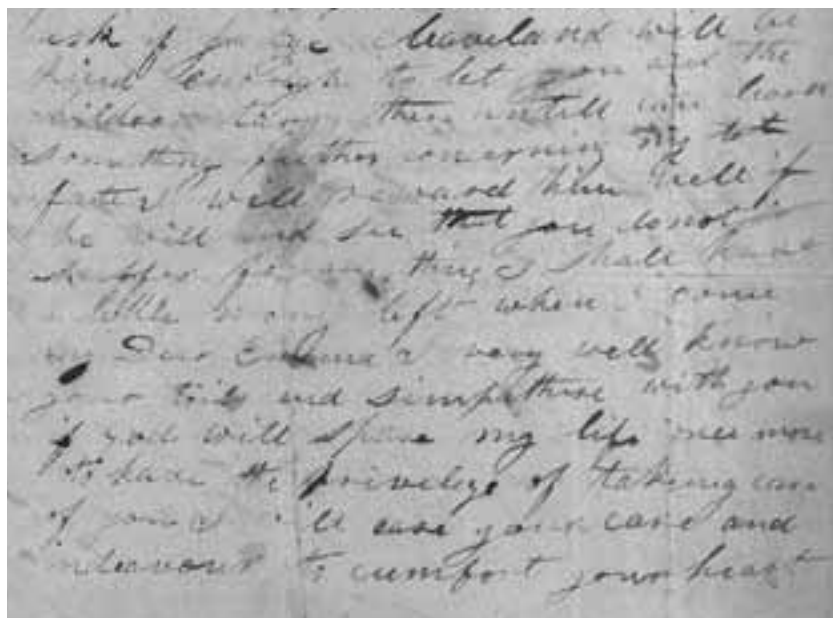 ask of you Judge Cleaveland will be
kind enough to let you and the
children tarry there untill you hear
something further concerning my
father will reward him well if
he will and see that you do not
suffer for any thing I shall have
a little mony left when I come
my Dear Emma I very well know
your toils and simpathise with you
if god will spare my life once more
to have the privelege of takeing care
of you I will ease your care and
indeavour to cumfort your heart